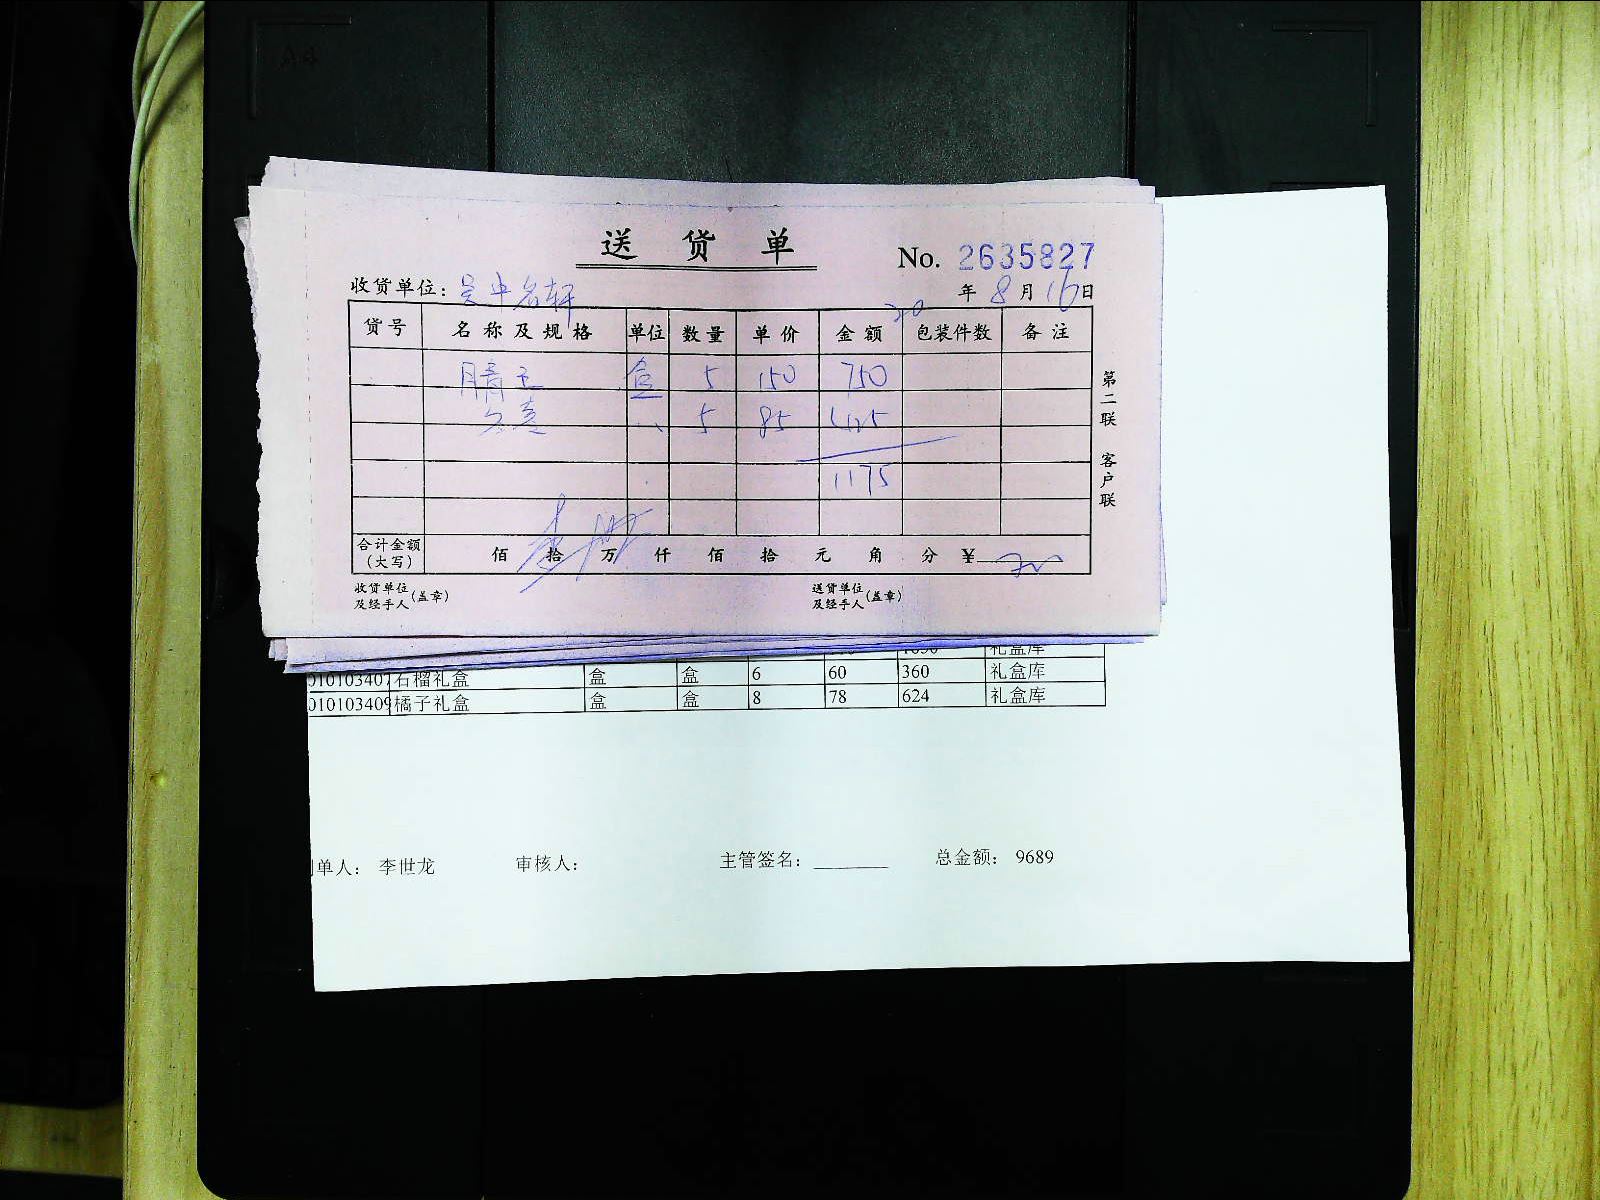 送货单
No. 2635827
收货单位: 吴中名轩 20 年 8 月 16 日
货号 名称及规格 单位 数量 单价 金额 包装件数 备注
晴王 盒 5 150 750
5 85 425
1175
合计金额(大写) 佰 拾 万 仟 佰 拾 元 角 分 ¥
收货单位及经手人(盖章) 送货单位及经手人(盖章)
第二联 客户联
礼盒库
010103407 石榴礼盒 盒 盒 6 60 360 礼盒库
010103409 橘子礼盒 盒 盒 8 78 624 礼盒库
单人: 李世龙 审核人: 主管签名: 总金额: 9689